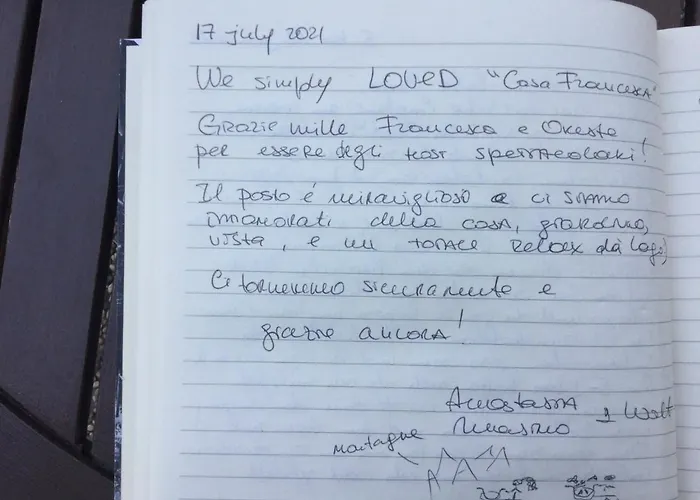 17 july 2021
We simply LOVED "Casa Francesca"
Grazie mille Francesca e Oreste
per essere degli host spettacolari!
Il posto é meraviglioso e ci siamo
innamorati della casa, giardino,
vista, e un totale relax da lago,
Ci torneremo sicuramente e
grazie ancora!
Anastasia
Massimo
Montagne